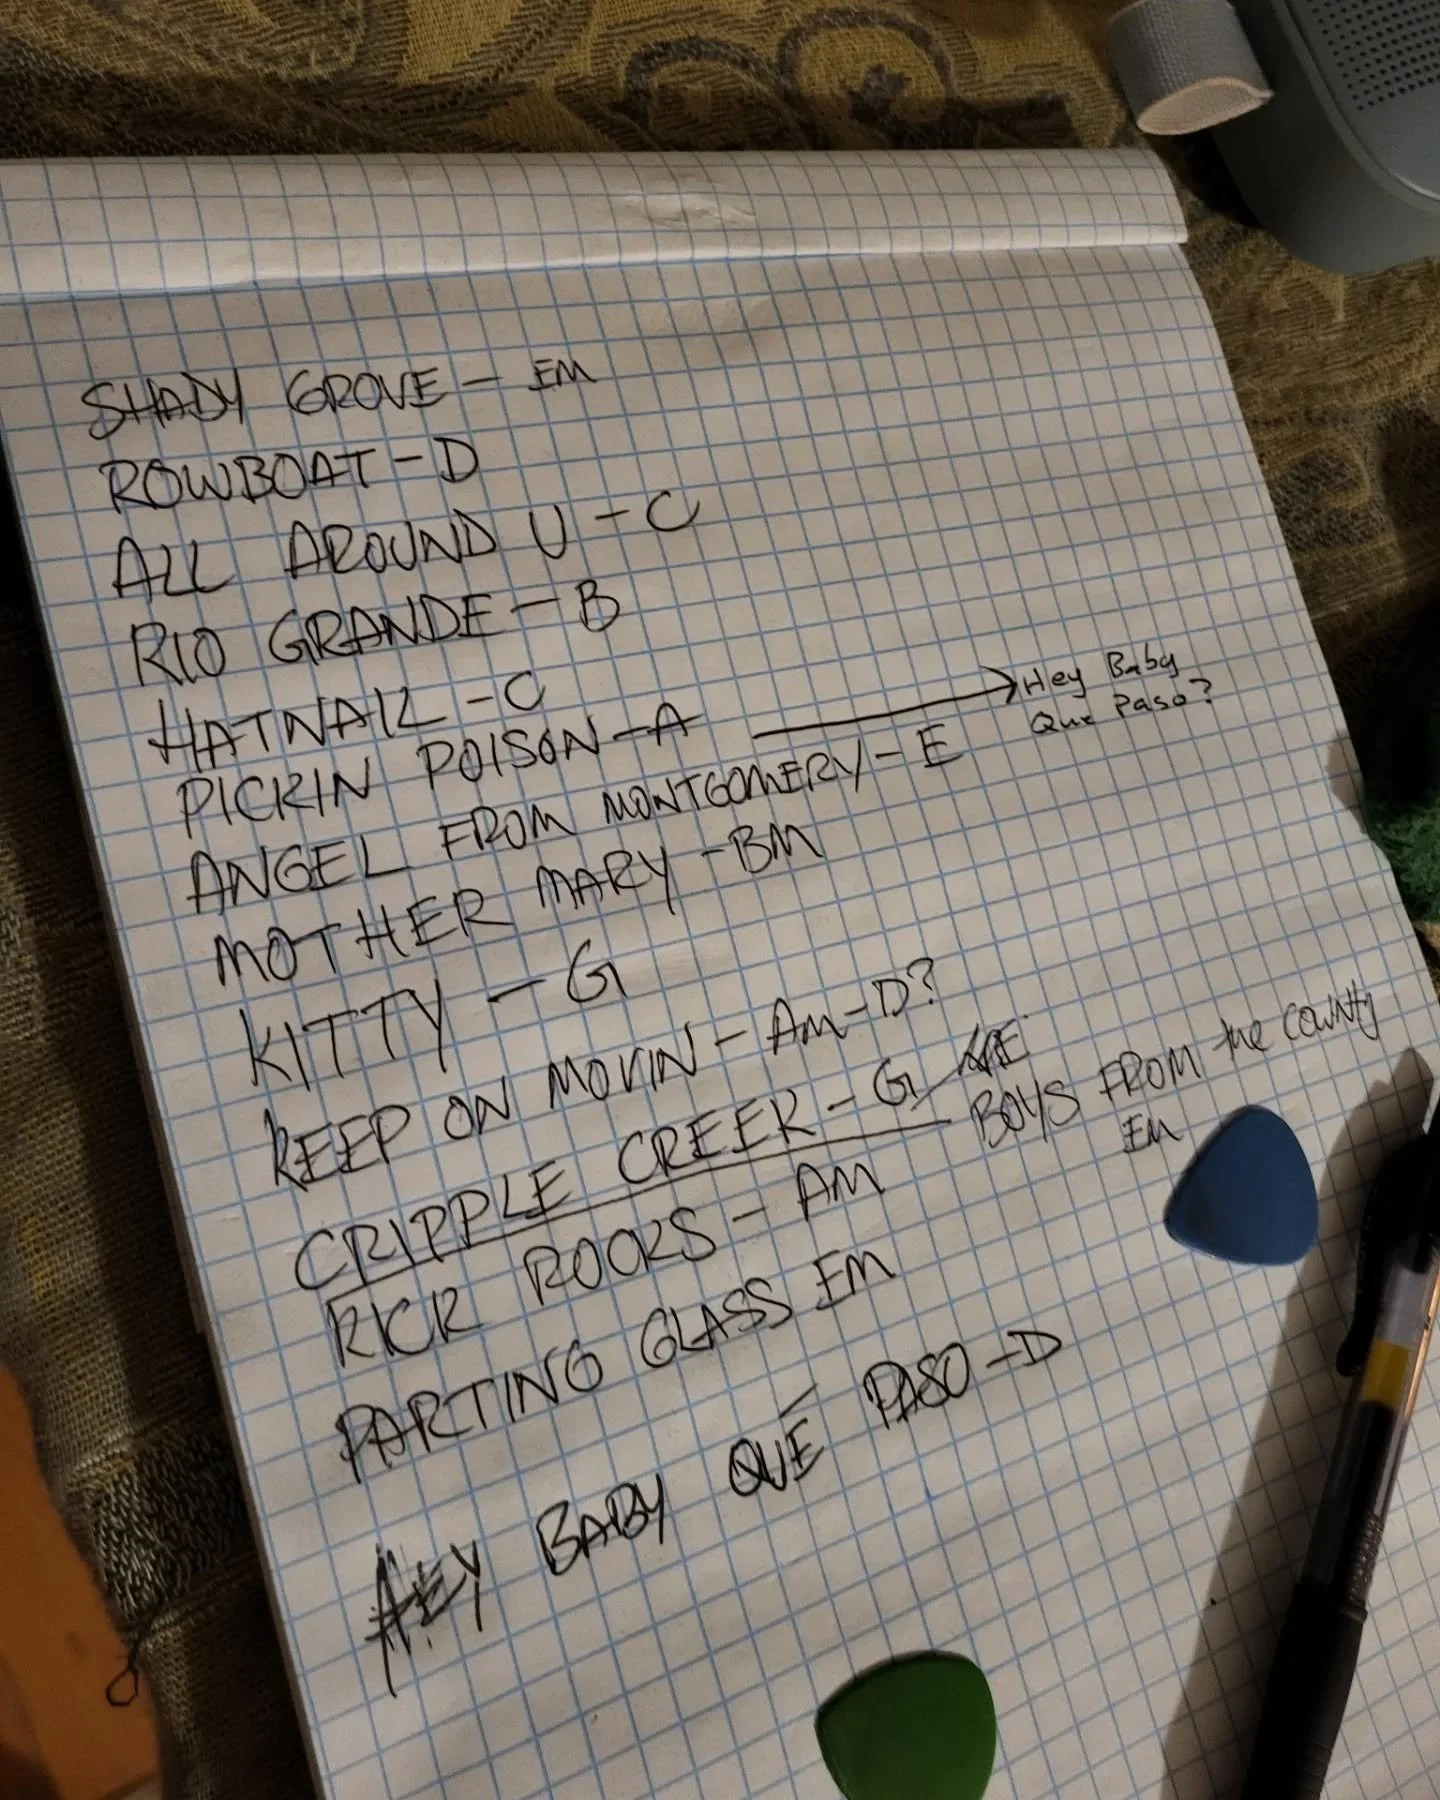 SHADY GROVE - EM
ROWBOAT - D
ALL AROUND U - C
RIO GRANDE - B
HATNAIL - C
PICKIN POISON - A → Hey Baby
Que Paso?
ANGEL FROM MONTGOMERY - E
MOTHER MARY - BM
KITTY - G
KEEP ON MOVIN - AM - D?
CRIPPLE CREEK - G
BOYS FROM the COUNTY
EM
RICK ROOKS - AM
PARTING GLASS EM
HEY BABY QUÉ PASO - D